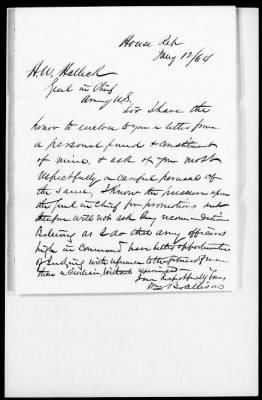 House Rep
Jany 12/64
H. W. Halleck
Genl in Chief
Army U.S.
Sir I have the
honor to enclose to you a letter from
a personal friend & constituent
of mine. & ask of you most
respectfully a careful perusal of
the same, I know the pressure upon
the Genl in Chief for promotions and
therefore will not ask any recommendation
Believing as I do that army officers
high in command have better opportunities
of Judging with reference to the fitness of men
than a civilian, without experience
Your Respectfully
Wm B Allison